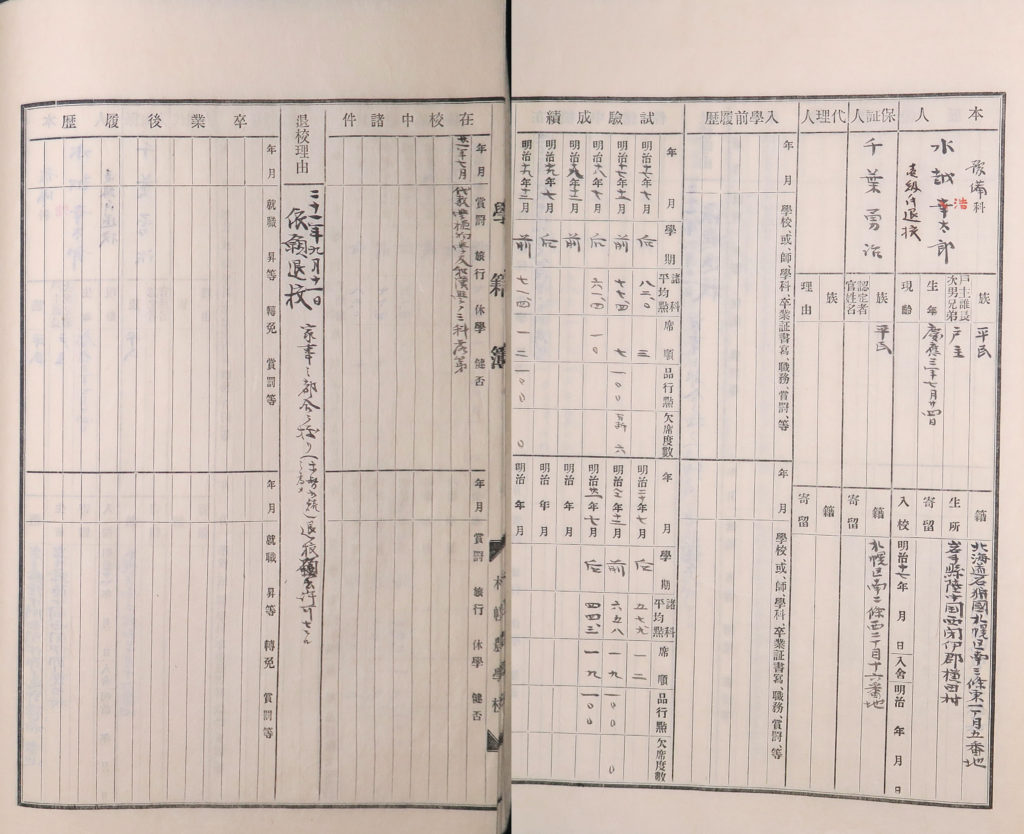 本人
豫備科
水越幸太郎
浩
退校
族 平民
戸主誰長次男兄弟 戸主
生年 慶應三年七月廿四日
現齢
籍 北海道石狩國札幌区南三條東一丁目五番地
生所 岩手縣陸中國西閉伊郡横田村
寄留
入校 明治十七年 月 日
入舍 明治 年 月 日
保証人
千葉勇治
族 平民
認定者官姓名
籍 札幌区南二條西三丁目十六番地
寄留
代理人
族
理由
籍
寄留
入學前履歴
年月
學校、或、師、學科、卒業証書寫、職務、賞罰、等
年月
學校、或、師、學科、卒業証書寫、職務、賞罰、等
試驗成績
年月 學期 諸科平均點 席順 品行點 欠席度數
明治十七年七月 后 八三、〇 三
明治十七年十二月 前 七七、四 七 一〇〇 六
明治十八年七月 后 六一、四 一〇
明治十八年十二月 前
明治十九年七月 后
明治十九年十二月 前 七一、四 一二 一〇〇 〇
年月 學期 諸科平均點 席順 品行點 欠席度數
明治二十年七月 后 五七、九 一二
明治二十年十二月 前 六五、八 一九 一〇〇 〇
明治廿一年七月 后 四四、三 一九 一〇〇
明治 年 月
明治 年 月
明治 年 月
學籍簿
札幌農學校
在校中諸件
年月 賞罰 旅行 休學 健否
廿一年七月
三科落第
年月 賞罰 旅行 休學 健否
退校理由
二十一年九月十一日
依願退校
家事之都合ニ依リ
卒業後履歴
年月 就職 昇等 轉免 賞罰等
年月 就職 昇等 轉免 賞罰等